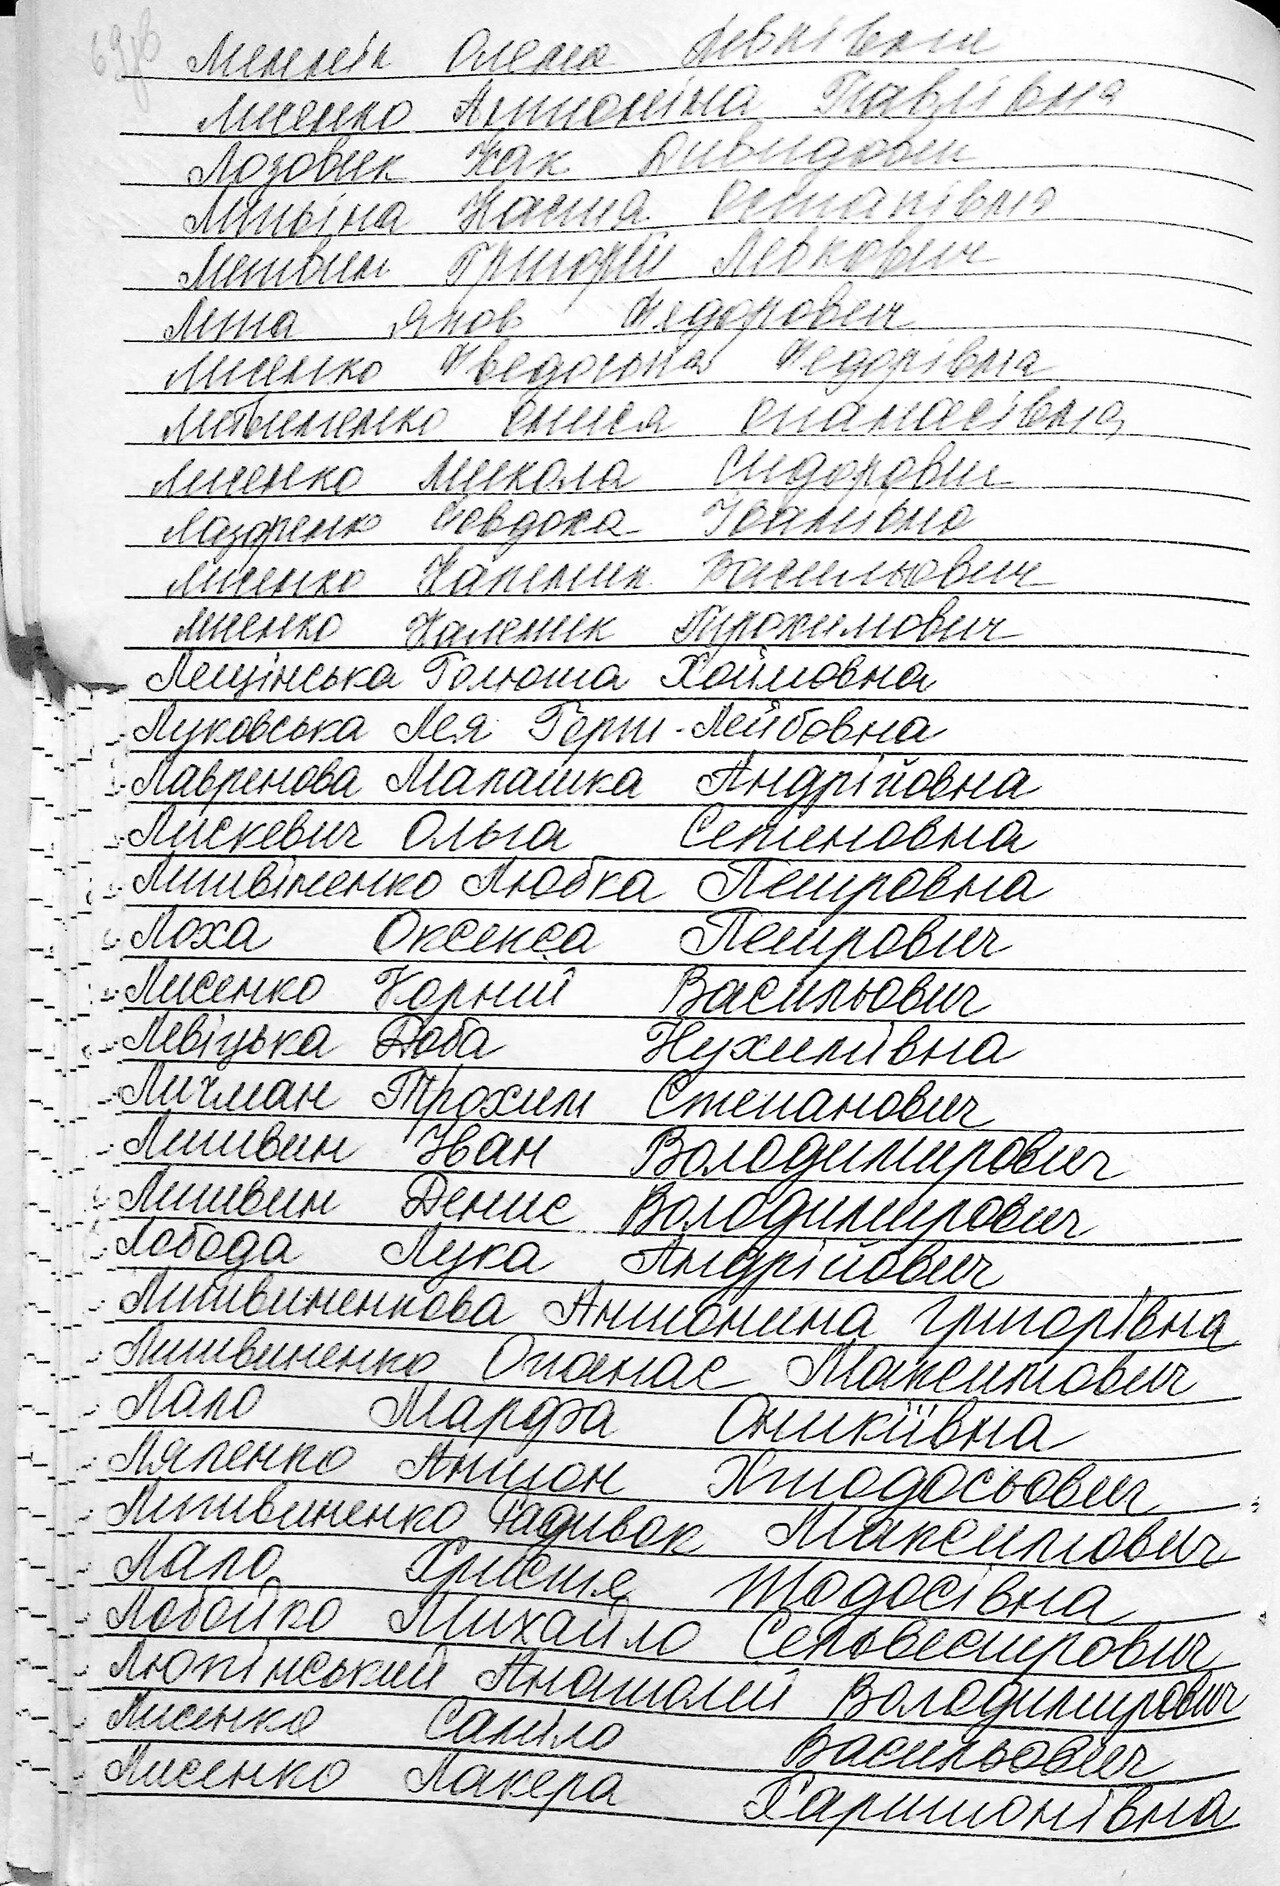 Олена
Лисенко Антоніна Павлівна
Лозовик Давидович
Настя Остапівна
Литвин Григорій Левкович
Яков Федорович
Лисенко Хведоська Федорівна
Литвиненко Онися Опанасівна
Лисенко Микола Сидорович
Лазаренко Іванівна
Лисенко Каленик Васильович
Лисенко Каленик Трохимович
Лещінська Голюта Хаймовна
Луковська Лея Герш-Лейбовна
Лавренова Малашка Андрійовна
Лискевич Ольга Семеновна
Литвіненко Любка Петровна
Лоха Оксенса Петрович
Лисенко Корній Васильович
Левіцька Доба Нухимівна
Личман Трохим Степанович
Литвин Іван Володимирович
Литвин Денис Володимирович
Лобода Лука Андрійович
Литвиненкова Антонина Григорівна
Литвиненко Опанас Максимович
Лало Марфа Оникіївна
Ляленко Антон Хтодосьович
Литвиненко Максимович
Лало Христя Тодосівна
Лобойко Михайло Сельвестрович
Люпінський Анатолій Володимирович
Лисенко Саміло Васильович
Лисенко Лакера Харитонівна